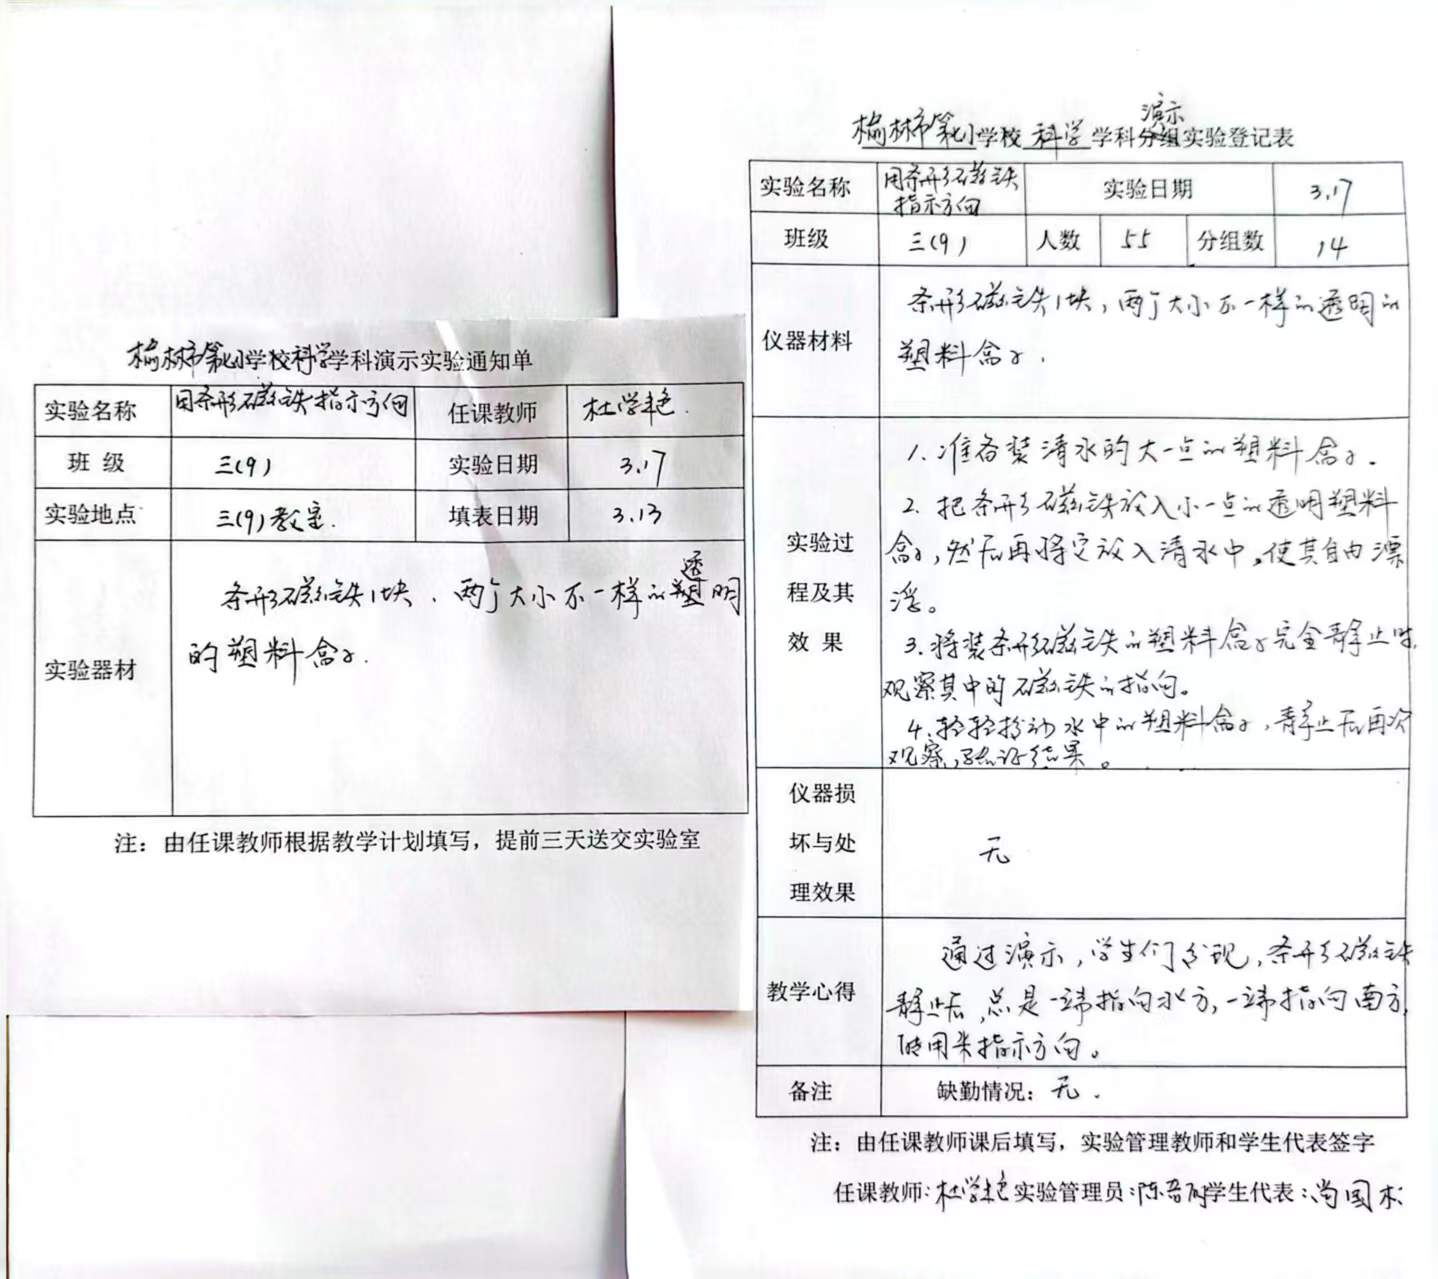 榆林市第七小学校科学学科演示实验通知单
实验名称 用条形磁铁指示方向 任课教师 杜学艳.
班 级 三(9) 实验日期 3.17
实验地点 三(9)教室. 填表日期 3.13
实验器材
条形磁铁1块、两个大小不一样的透明
的塑料盒子.
注：由任课教师根据教学计划填写，提前三天送交实验室
演示
榆林市第七小学校科学学科分组实验登记表
实验名称 用条形磁铁指示方向 实验日期 3.17
班级 三(9) 人数 55 分组数 14
仪器材料
条形磁铁1块，两个大小不一样的透明的
塑料盒子.
实验过程及其效果
1.准备装清水的大一点的塑料盒子.
2.把条形磁铁放入小一点的透明塑料
盒子,然后再将它放入清水中,使其自由漂
浮。
3.将装条形磁铁的塑料盒子完全静止时,
观察其中的磁铁的指向。
4.轻轻拨动水中的塑料盒子,静止后再次
观察,验证结果。
仪器损坏与处理效果 无
教学心得
通过演示,学生们发现,条形磁铁
静止后,总是一端指向北方,一端指向南方,
能用来指示方向。
备注 缺勤情况：无.
注：由任课教师课后填写，实验管理教师和学生代表签字
任课教师:杜学艳 实验管理员:陈 学生代表:尚国